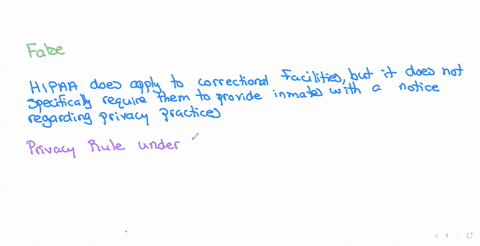 False
HIPAA does apply to correctional facilities, but it does not
specifically require them to provide inmates with a notice
regarding privacy practices
Privacy Rule under